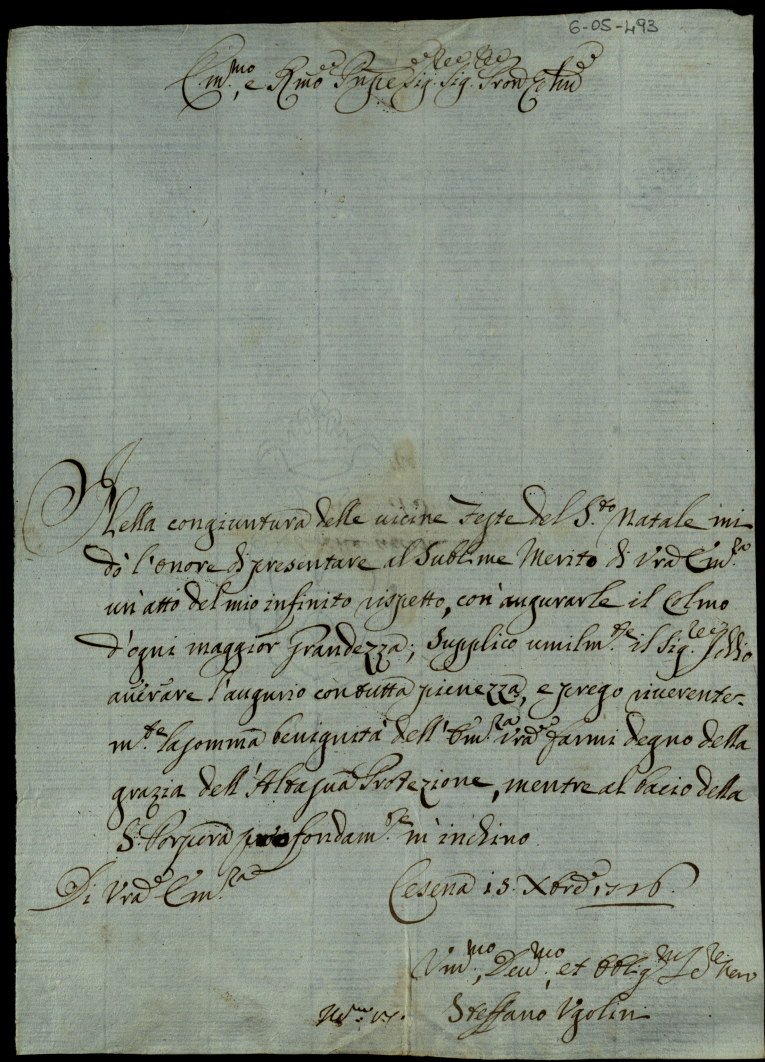 6-05-493
Em.mo, e Rmo Pnpe Sig. Sig. Pron Colmo
Nella congiuntura delle uicine Feste del S.to Natale mi
dò l'onore di presentare al Sublime Merito di Vra Em.za
un'atto del mio infinito rispetto, con augurarle il Colmo
d'ogni maggior Grandezza; Supplico umilm.te il Sig.re Iddio
auerare l'augurio con tutta pienezza, e prego riuerente-
m.te la somma benignità dell'Em.za Vra farmi degno della
grazia dell'Alta sua Protezione, mentre al bacio della
S. Porpora profondam.te m'inchino
Di Vra Em.za
Cesena 15. Xbre 1716.
Um.mo, Deu.mo, et Obblig.mo Se.re Vero
Steffano Vgolini